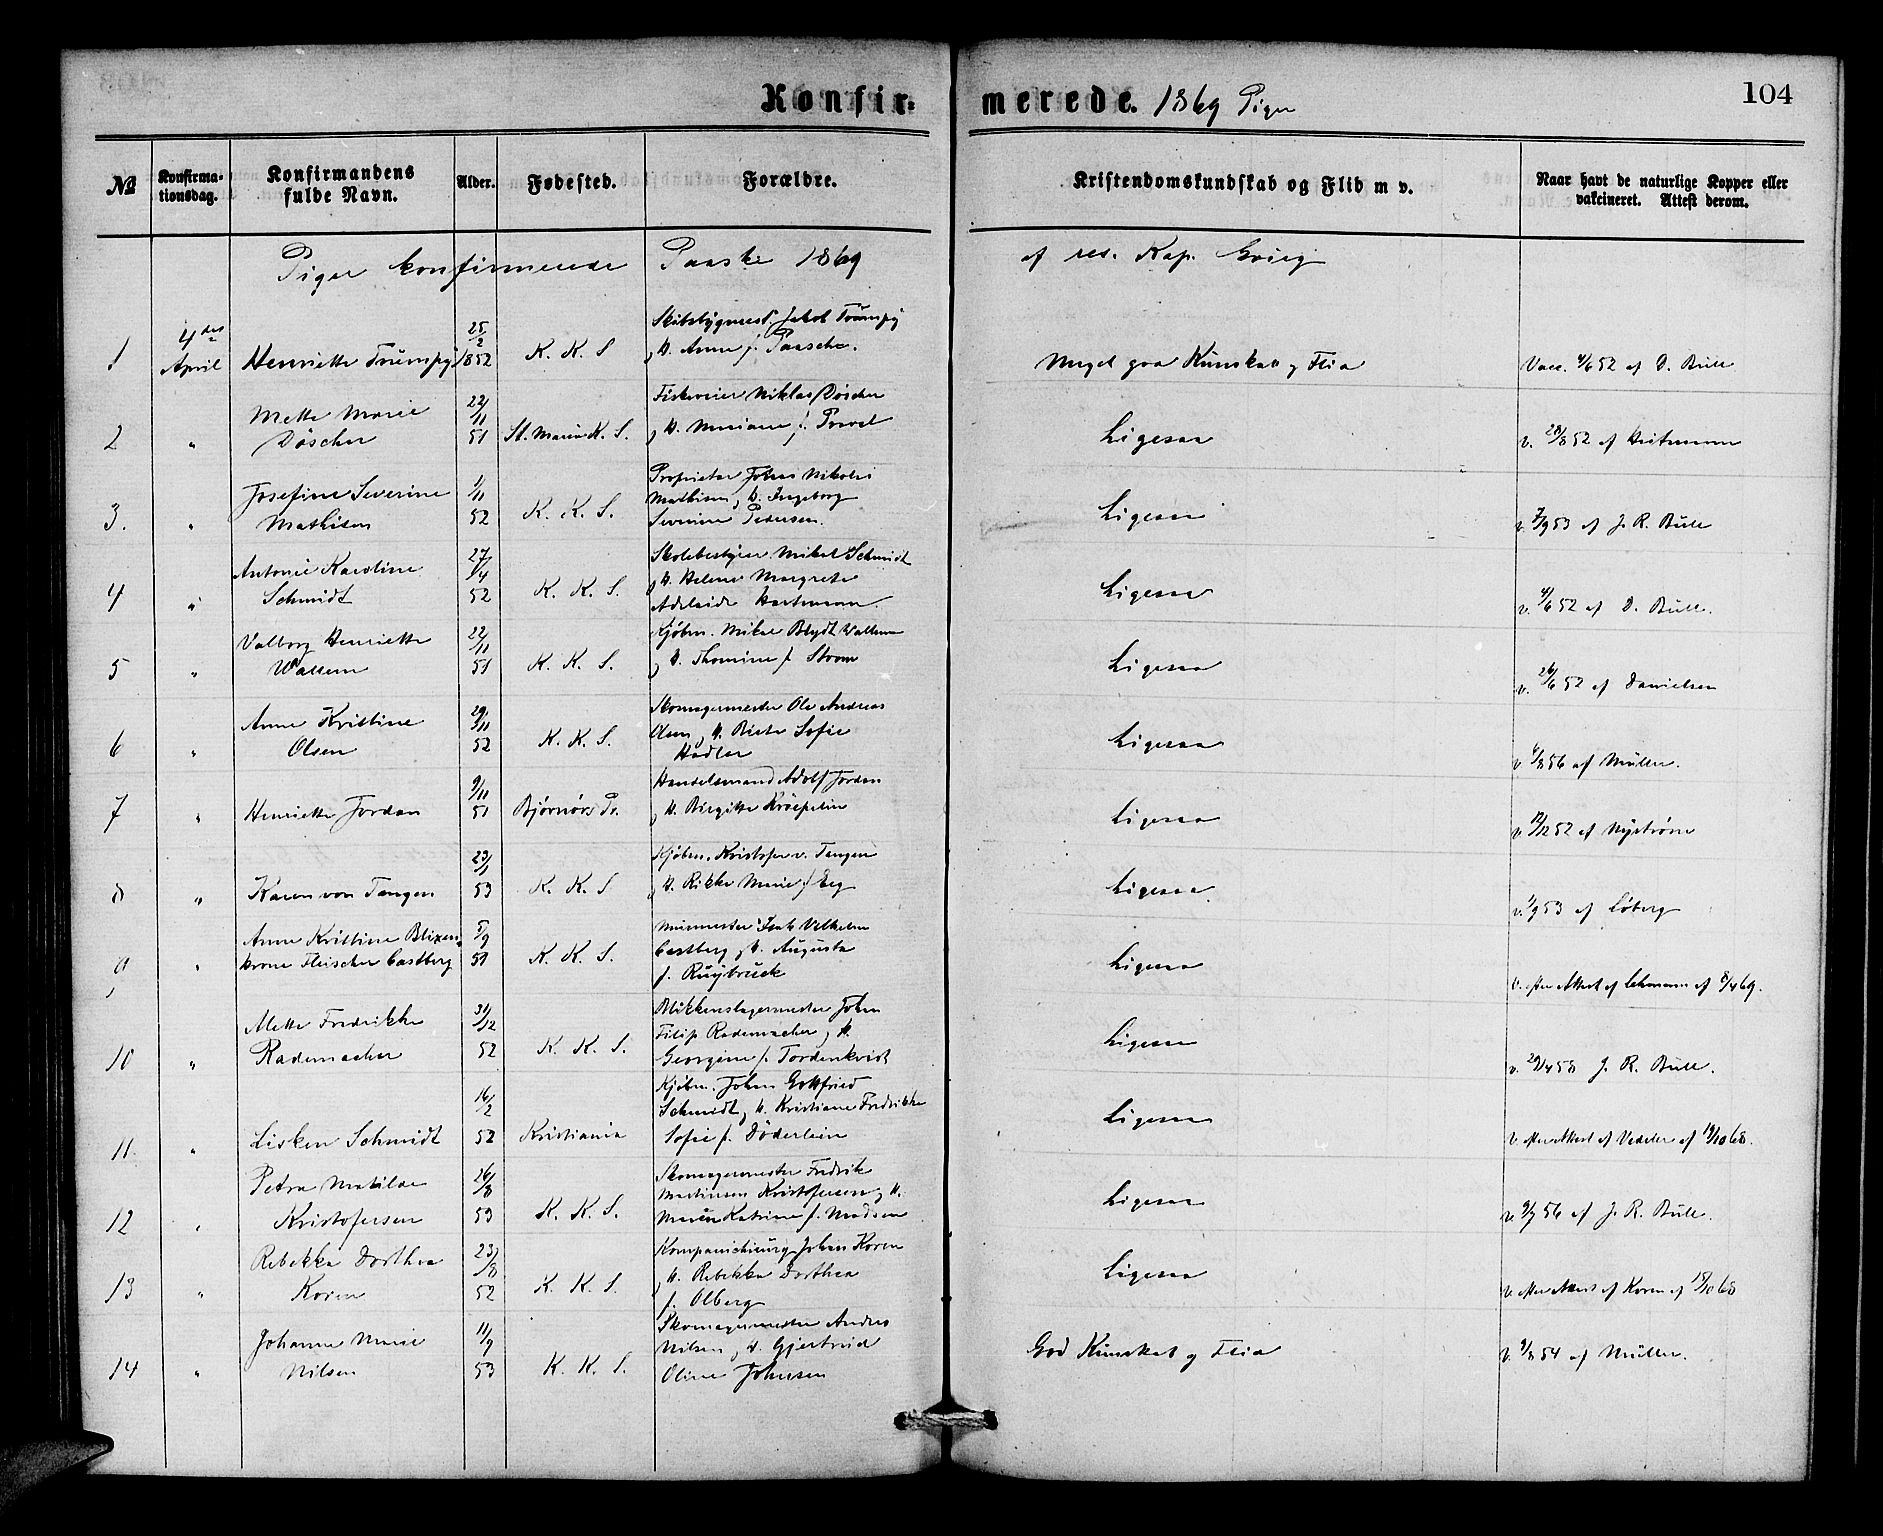 Konfir-merede. 1869 Piger
104
№
Konfirma-
tionsdag.
Konfirmandens
fulde Navn.
Alder.
Fødested.
Forældre.
Kristendomskundskab og Flid m v.
Naar havt de naturlige Kopper eller
vakcineret. Attest derom.
Piger konfirmerede Paaske 1869 af res. Kap. Grieg
1
4de
April
Henriette Trumpy
25/2
1852
K. K. S
Skibsbygmest. Jakob Trumpy
, H. Anne f. Paasche.
Meget god Kunskab og Flid
Vacc. 4/6 52 af D. Bull
2
"
Mette Marie
Döscher
22/11
51
St. Marie K. S.
Niklas Döscher
, H. Mariane f.
Ligesaa
v. 28/8 52 af
3.
"
Josefine Severine
Mathisen
1/11
52
K. K. S.
Proprietær Johan Nikolai
Mathisen, H. Ingeborg
Severine Pedersen.
Ligesaa
v. 7/9 53 af J. R. Bull
4
"
Antonie Karoline
Schmidt
27/4
52
K. K. S.
Skolebestyrer Mikal Schmidt
, H. Helene Margrete
Adelaide Hartmann.
Ligesaa
v. 4/6 52 af D. Bull.
5
"
Valborg Henriette
Wallem
22/11
51
K. K. S.
Kjøbm. Mikal Blydt Wallem
, H. Thomine f. Strøm
Ligesaa
v. 26/6 52 af Danielsen
6
"
Anne Kristine
Olsen
29/11
52
K. K. S.
Skomagermester Ole Andreas
Olsen, H. Birte Sofie
Ligesaa
v. 4/8 56 af Müller.
7
"
Henriette Jordan
9/11
51
Bjørnørs Pr.
Handelsmand Adolf Jordan
, H. Birgitte Kröepelin
Ligesaa
v. 12/12 52 af Nystrøm
8
"
Karen von Tangen
23/1
53
K. K. S
Kjøbm. Kristofer v. Tangen
, H. Rikke Marie f. Eeg
Ligesaa.
v. 1/9 53 af Löberg
9
"
Anne Kristine Blixen-
krone Fleischer Castberg
5/9
51
K. K. S.
Murmester Isak Vilhelm
Castberg, H. Augusta
f. Ruybruck
Ligesaa
v. efter Attest af Lehmann af 8/4 69.
10
"
Mette Fredrikke
Rademacher
31/12
52
K. K. S.
Blikkenslagermester Johan
Filip Rademacher, H.
Georgine f. Tordenkvist
Ligesaa
v. 29/4 58 J. R. Bull.
11.
"
Lisken Schmidt
16/2
52
Kristiania
Kjøbm. Johan Gottfried
Schmidt, H. Kristiane Fredrikke
Sofie f. Döderlein
Ligesaa
v. efter Attest af Vedeler af 19/10 68.
12
"
Petra Matilde
Kristofersen
26/8
53
K. K. S.
Skomagermester Fredrik
Martinsen Kristofersen, H.
Maren Katrine f. Madsen
Ligesaa
v. 9/7 56 af J. R. Bull.
13
"
Rebekka Dorthea
Koren
23/8
52
K. K. S.
Kompanichirurg Johan Koren
, H. Rebekka Dorthea
f. Olberg
Ligesaa
v. efter Attest af Koren af 18/10 68
14
"
Johanne Marie
Nilsen
11/9
53
K. K. S.
Skomagermester Anders
Nilsen, H. Gjertrud
Oline Johnsen
God Kunskab og Flid
v. 9/8 54 af Müller.